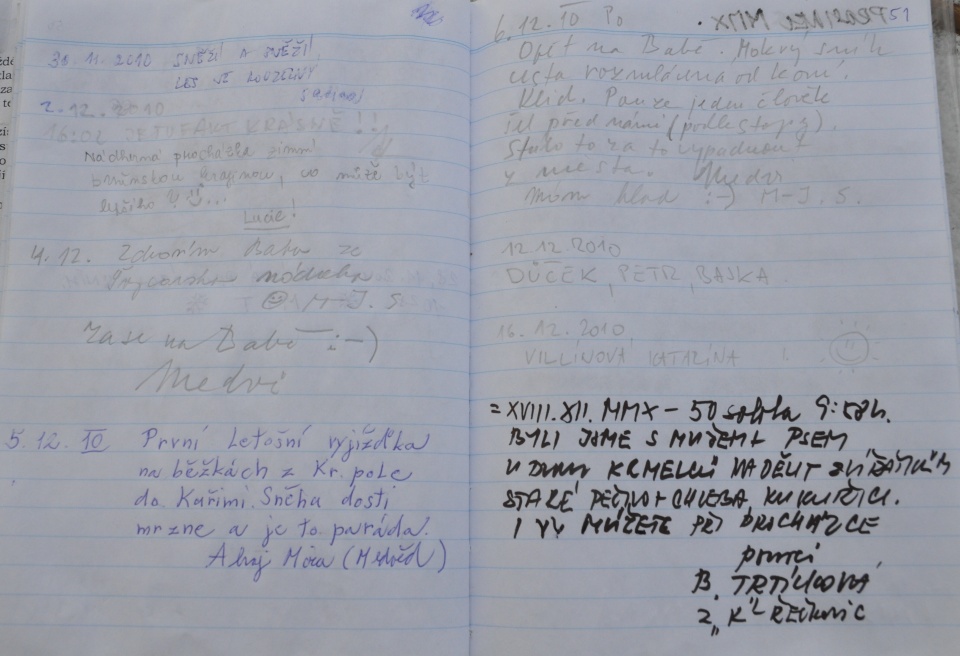 30.11.2010 SNĚŽÍ A SNĚŽÍ
LES JE KOUZELNÝ
2.12.2010
16:02 JE TU FAKT KRÁSNĚ!!
Nádherná procházka zimní
brněnskou krajinou, co může být
lepšího?! ...
Lucie!
4.12. Zdravím Babu ze
Švýcarska nádhera
M-J. S.
Zase na Babě :-)
Medvi
5.12.10 První letošní vyjížďka
na běžkách z Kr. pole
do Kuřimi. Sněha dosti
mrzne a je to paráda.
Ahoj Míra (Medvěd)
PROSINEC MMX 51
6.12.10 Po
Opět na Babě. Mokrý sníh
cesta rozmlácená od koní.
Klid. Pouze jeden člověk
šel před námi (podle stopy).
Stálo to za to vypadnout
z města. Medvi
Mám hlad :-) M-J. S.
12.12.2010
DŮČEK, PETR, BASKA
16.12.2010
VILLÍNOVÁ KATARÍNA !
= XVIII.XII. MMX - 50 sobota 9:58h.
BYLI JSME S MUŽEM + PSEM
KRMELCŮ NADĚLIT ZVÍŘÁTKŮM
STARÉ PEČIVO + CHLEBA KUKUŘICI.
I VY MŮŽETE PŘI PROCHÁZCE
pomoci
B.
Z